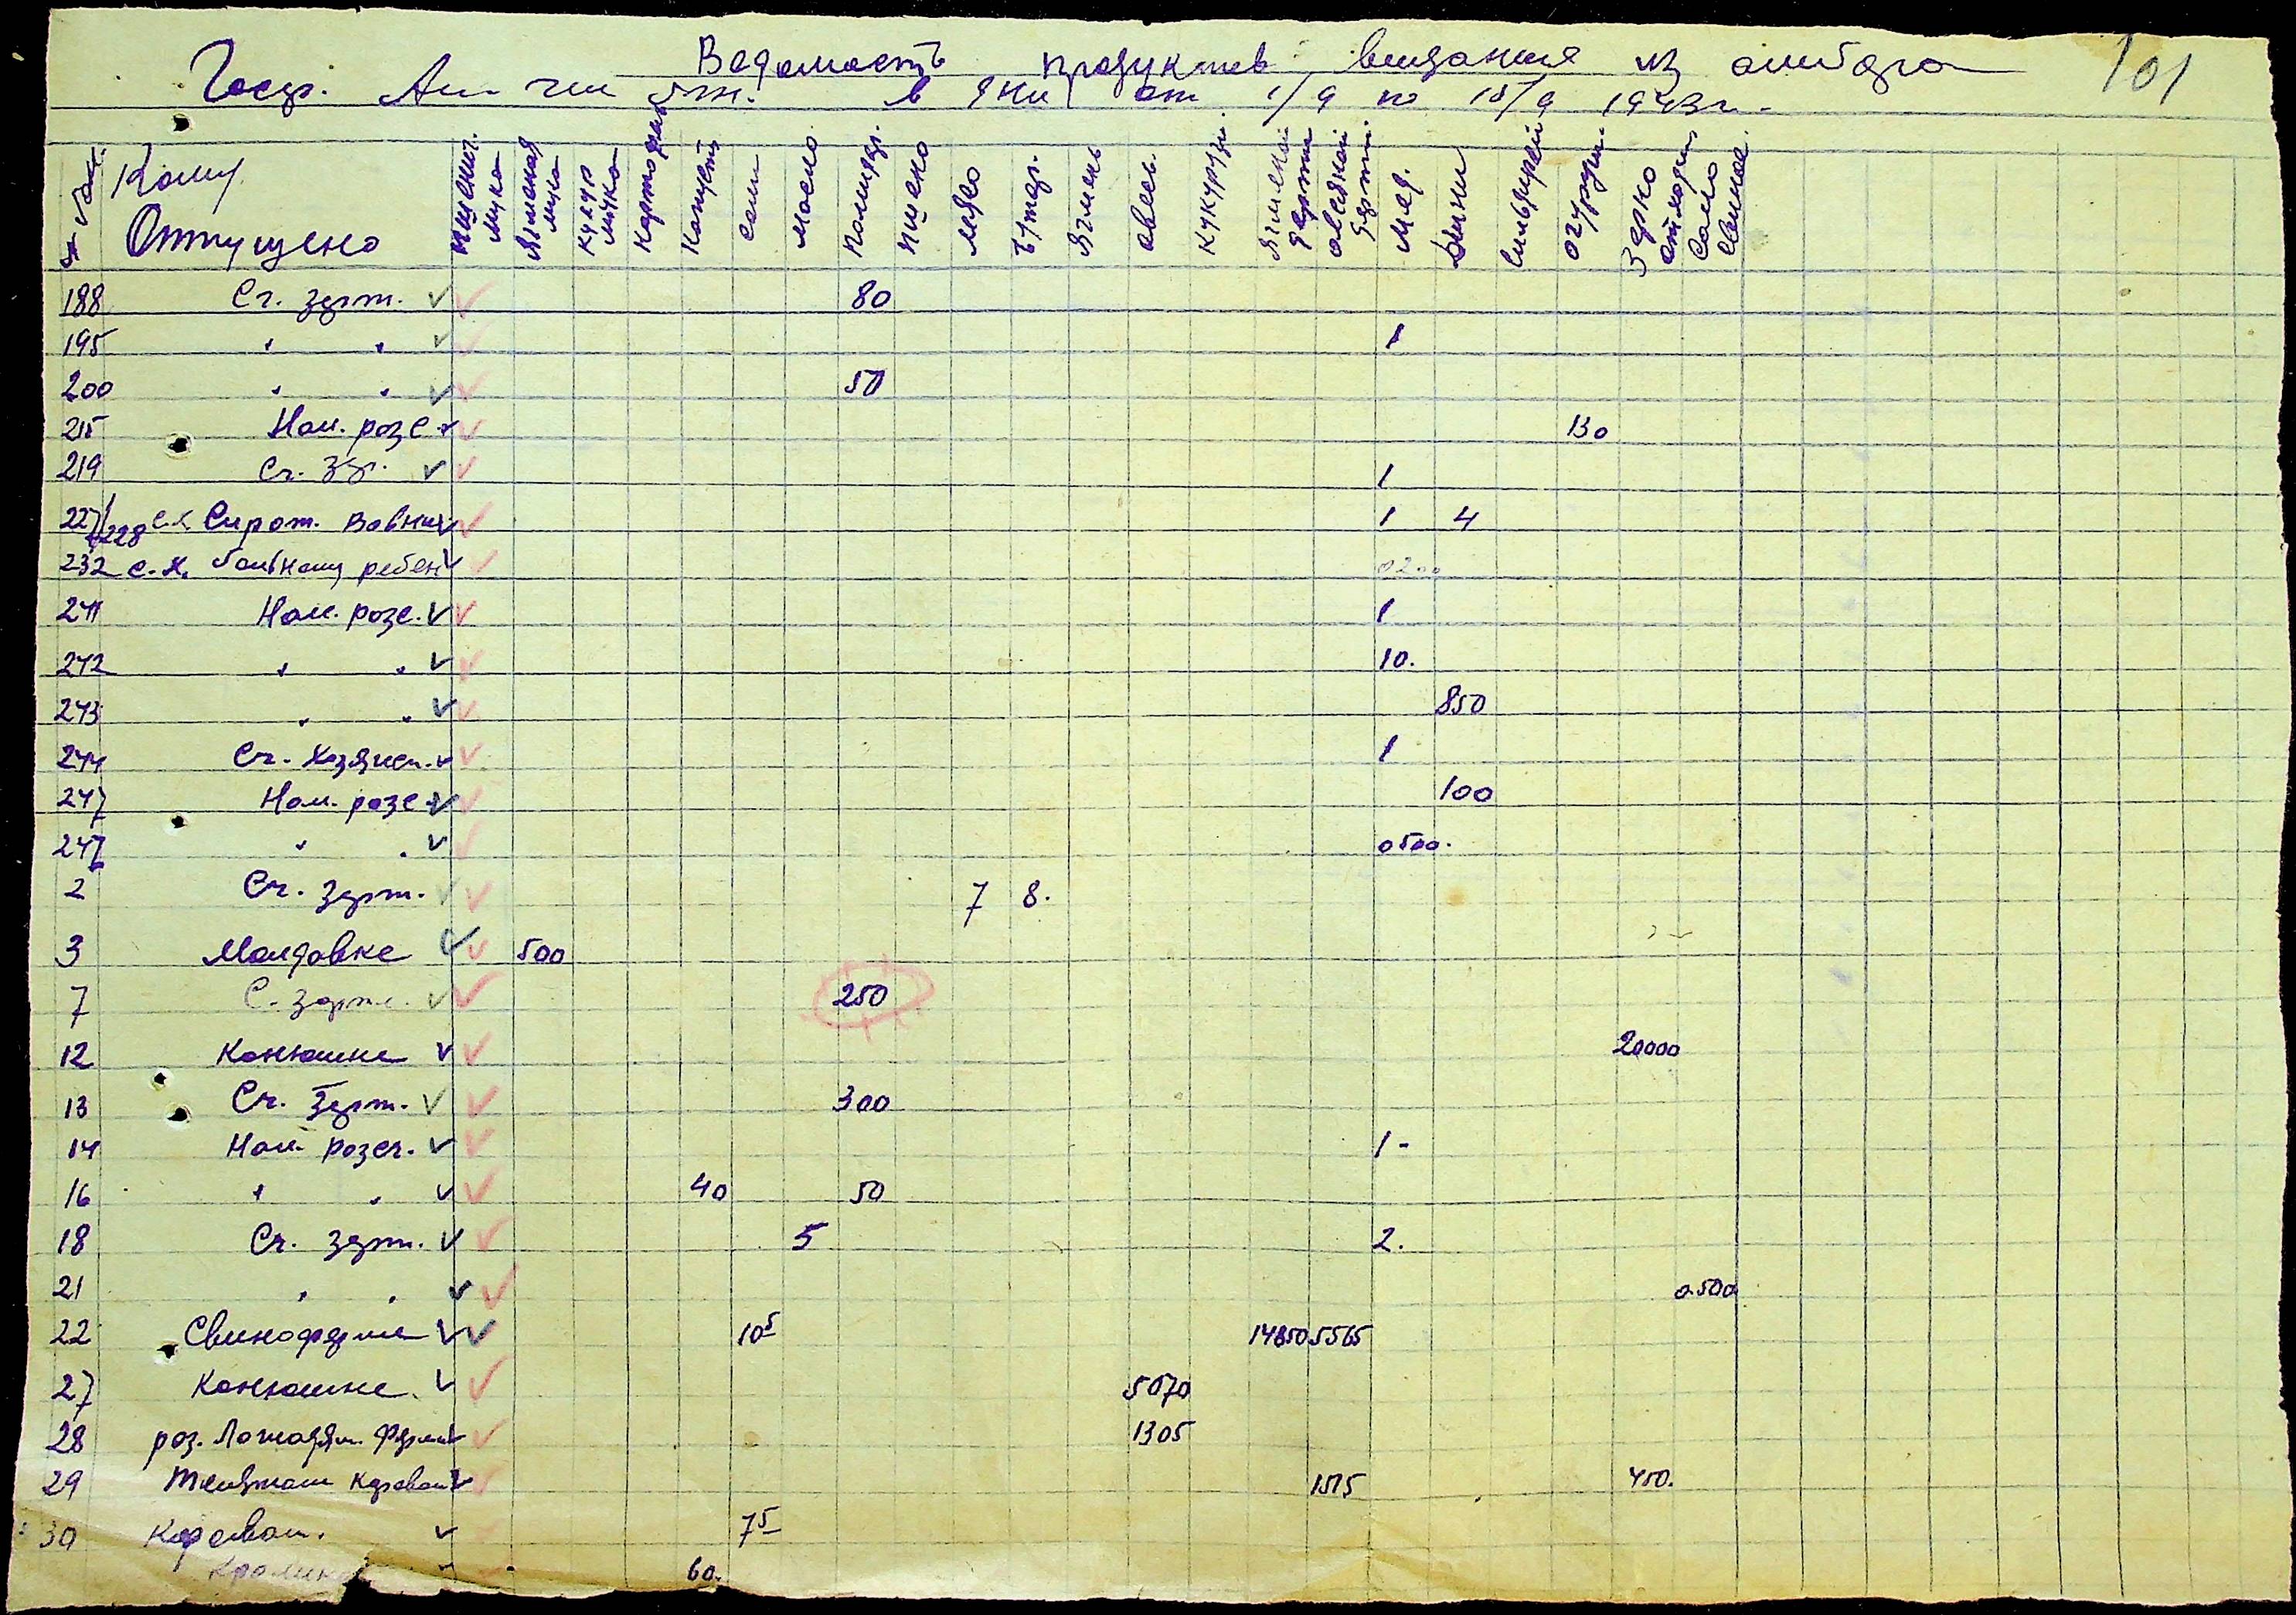 101
Ведомость продуктов видания из амбара
Госп. в дни от 1/9 по 15/9 1943 г.
Кому Отпущено
Пшенич. мука
Ячменая мука
Кукур мука
Картофля
Капуста
Соли
Масло
Помидр.
Пшено
Мясо
Ячмень
Овесь
Кукурузы
Ячменой дерти
овесяной дерти
Мед.
Дини
огурци
Зерно отходи
Сало свиное
188 Сч. Зерт. 80
195 " " 1
200 " " 50
215 Нам. розс 130
219 Сч. 1
227/228 с.х. Сирот. 1 4
232 с.х. больному ребен 0200
241 Нам. розс. 1
242 " " 10.
243 " " 850
244 Сч. Хозяисп. 1
247 Нам. розс 100
247 " " 0500.
2 Сч. Зерт. 7 8.
3 Молдовке 500
7 С. Зерт. 250
12 Конюшне 20000
13 Сч. Зерт. 300
14 Нам. розсч. 1-
16 " " 40 50
18 Сч. Зерт. 5 2.
21 " " 0.500
22 Свиноферме 10 5 14850 5565
27 Конюшне. 5070
28 роз. Лошадям. Ферми 1305
29 Телятам Коровам 1515 450.
30 Коровам. 7 5
60.